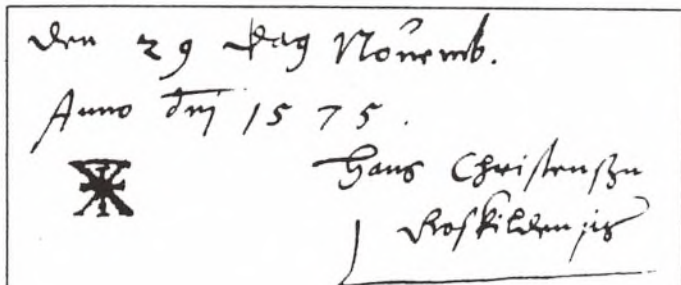 den 29 dag Nouemb.
Anno dnj 1575.
Hans Christenszn
Roskildensis